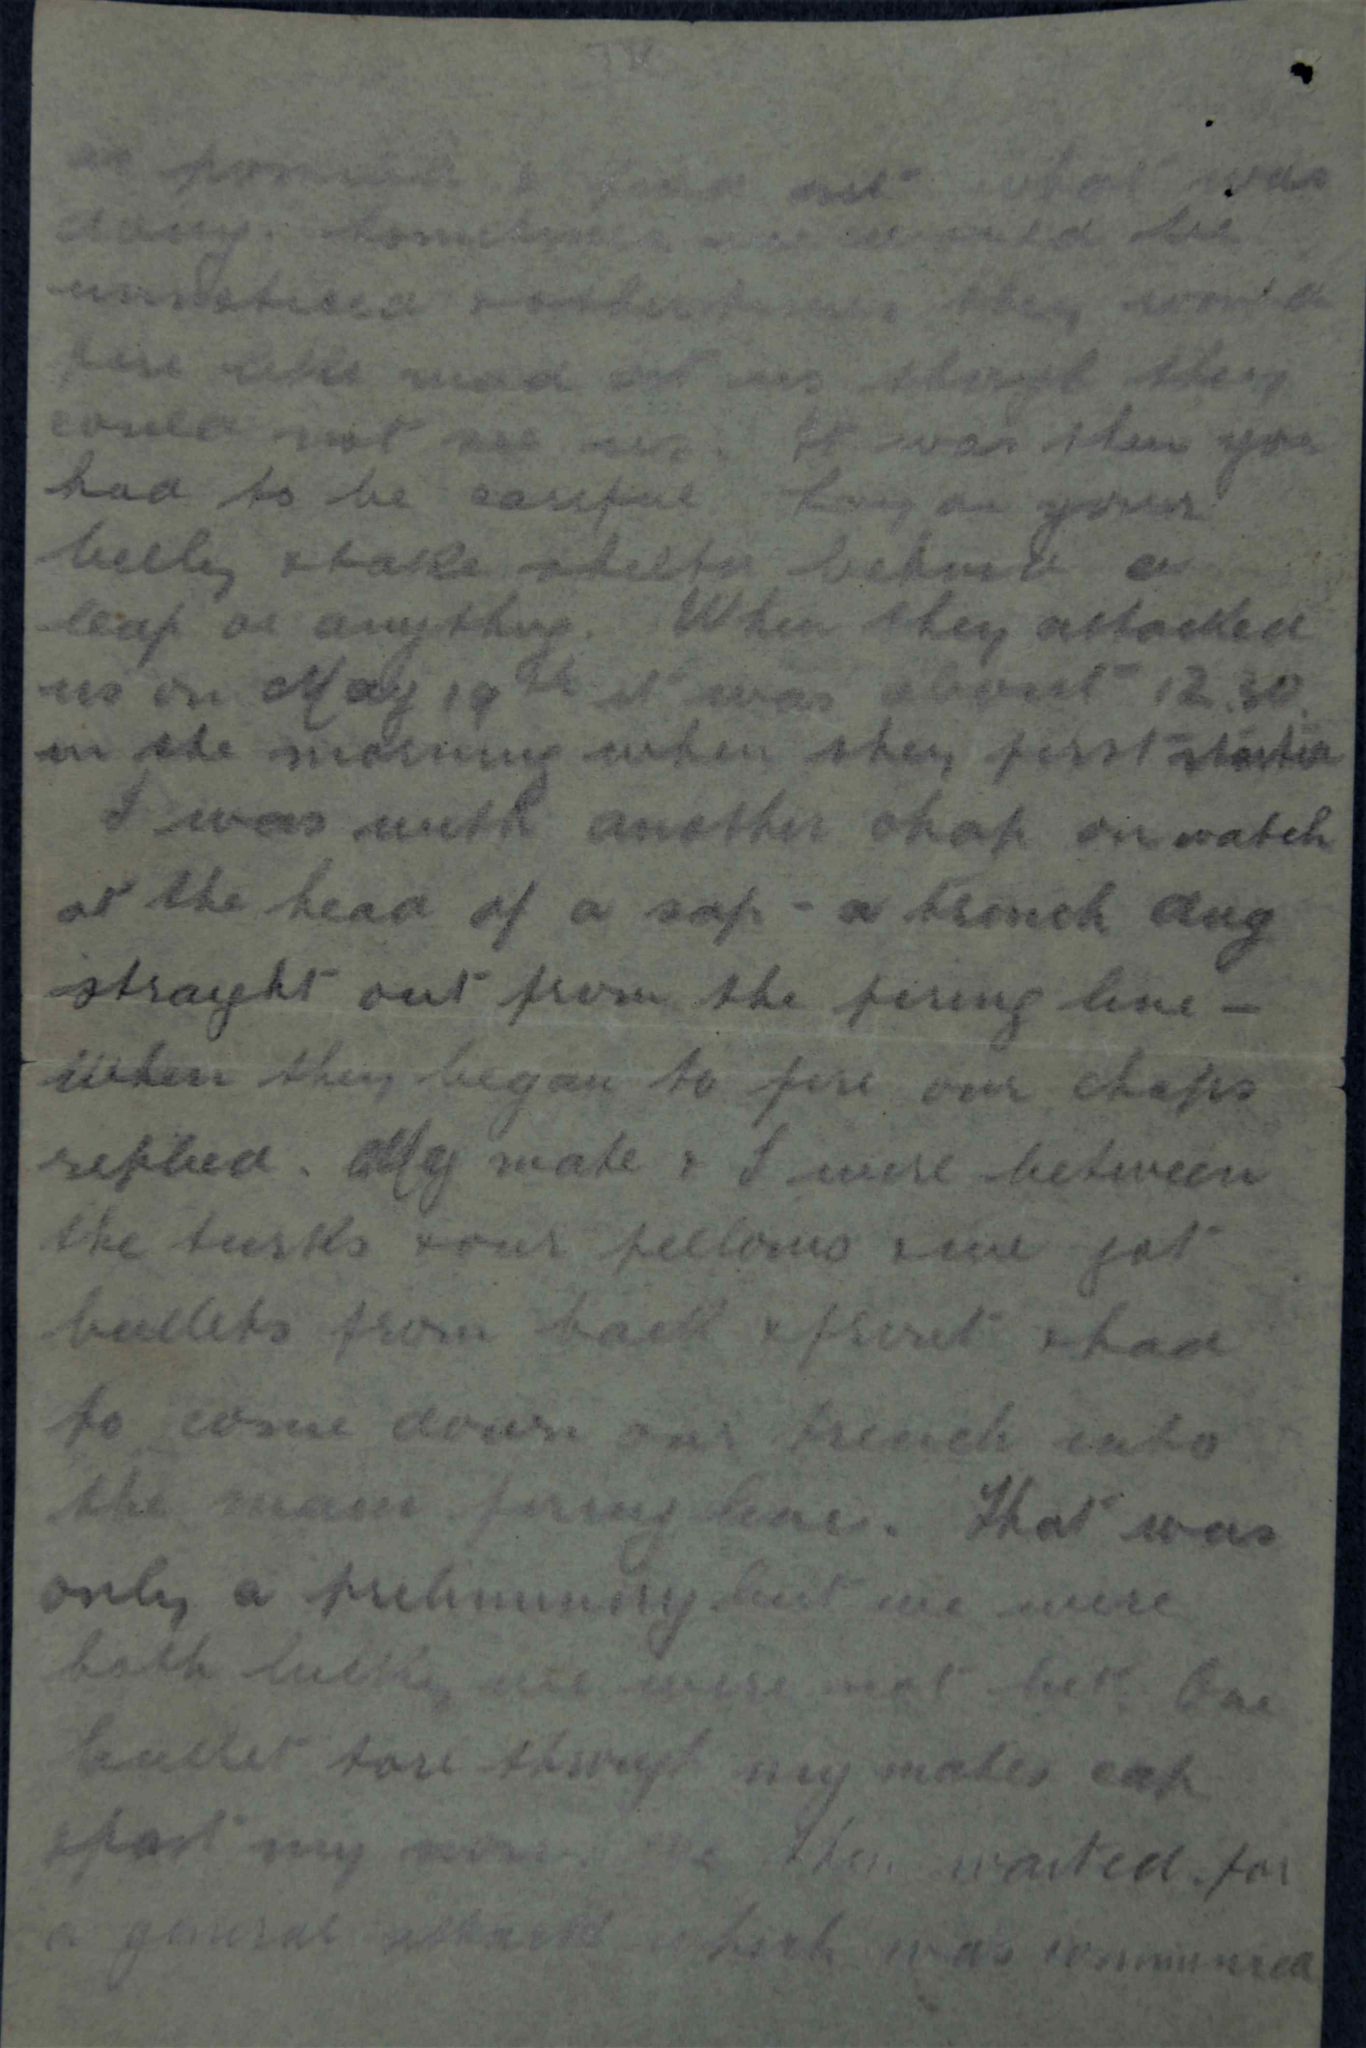 as possible & find out what was
doing. Sometimes we would be
unnoticed & other times they would
fire like mad at us though they
could not see us. It was then you
had to be careful Lay on your
belly & take shelter behind a
leaf or anything. When they attacked
us on May 19th it was about 12.30.
in the morning when they first started
I was with another chap on watch
at the head of a sap - a trench dug
straight out from the firing line -
when they began to fire our chaps
replied. My mate & I were between
the turks & our fellows & we got
bullets from back & front & had
to come down our trench into
the main firing line. That was
only a preliminary but we were
both lucky we were not hit. One
bullet tore through my mates cap
& past my . We then waited for
a general attack which was commenced